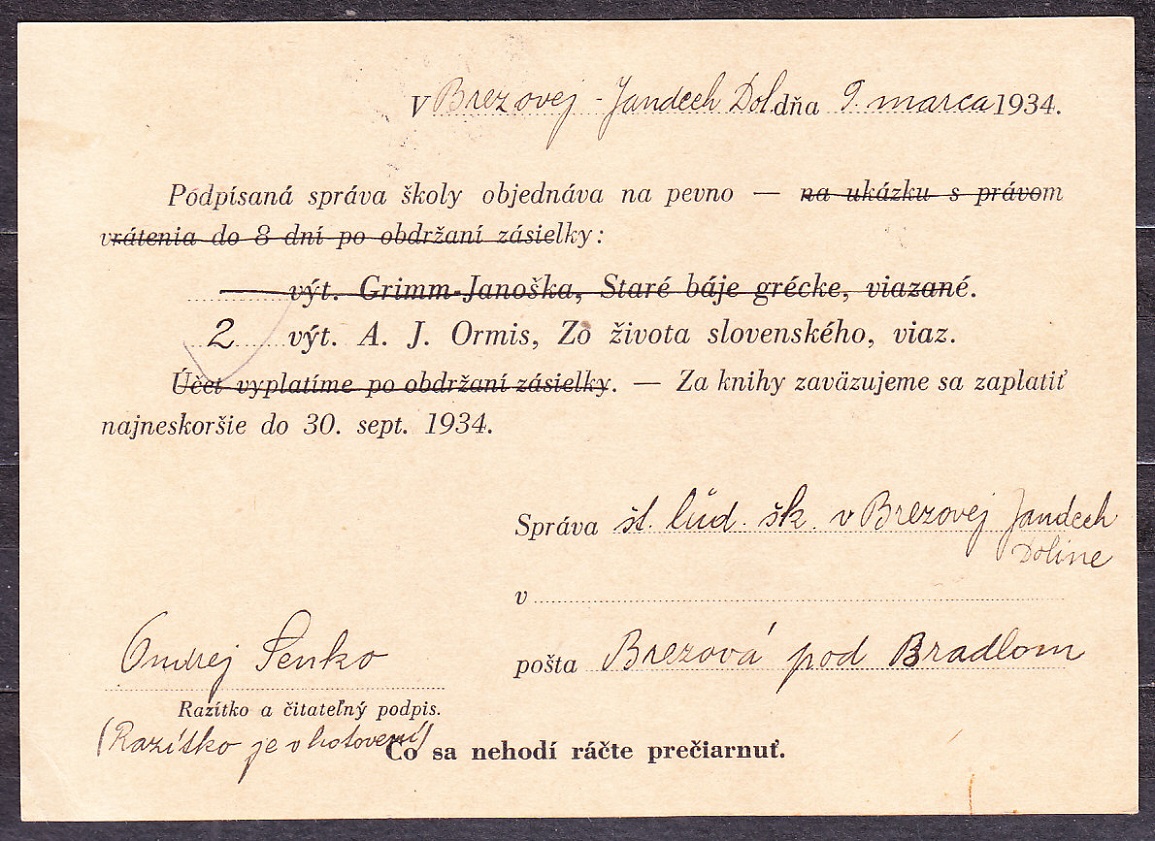 V Brezovej - Jandech Dol. dňa 9. marca 1934.
Podpísaná správa školy objednáva na pevno — na ukázku s právom
vrátenia do 8 dní po obdržaní zásielky:
výt. Grimm-Janoška, Staré báje grécke, viazané.
2 výt. A. J. Ormis, Zo života slovenského, viaz.
Účet vyplatíme po obdržaní zásielky. — Za knihy zaväzujeme sa zaplatiť
najneskoršie do 30. sept. 1934.
Správa št. ľud. šk. v Brezovej Jandech
Doline
v
pošta Brezová pod Bradlom
Ondrej Senko
Razítko a čitateľný podpis.
(Razítko je v hotovení)
Čo sa nehodí ráčte prečiarnuť.